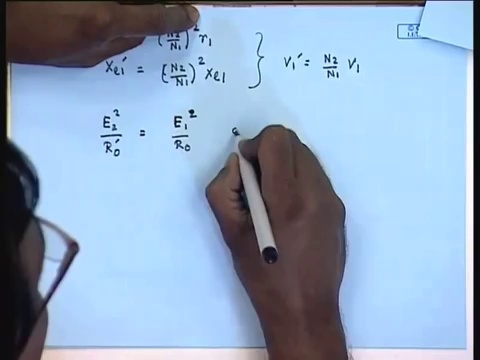 (N2/N1)^2 r1
xe1' = (N2/N1)^2 xe1 } V1' = N2/N1 V1
E2^2/R0' = E1^2/R0